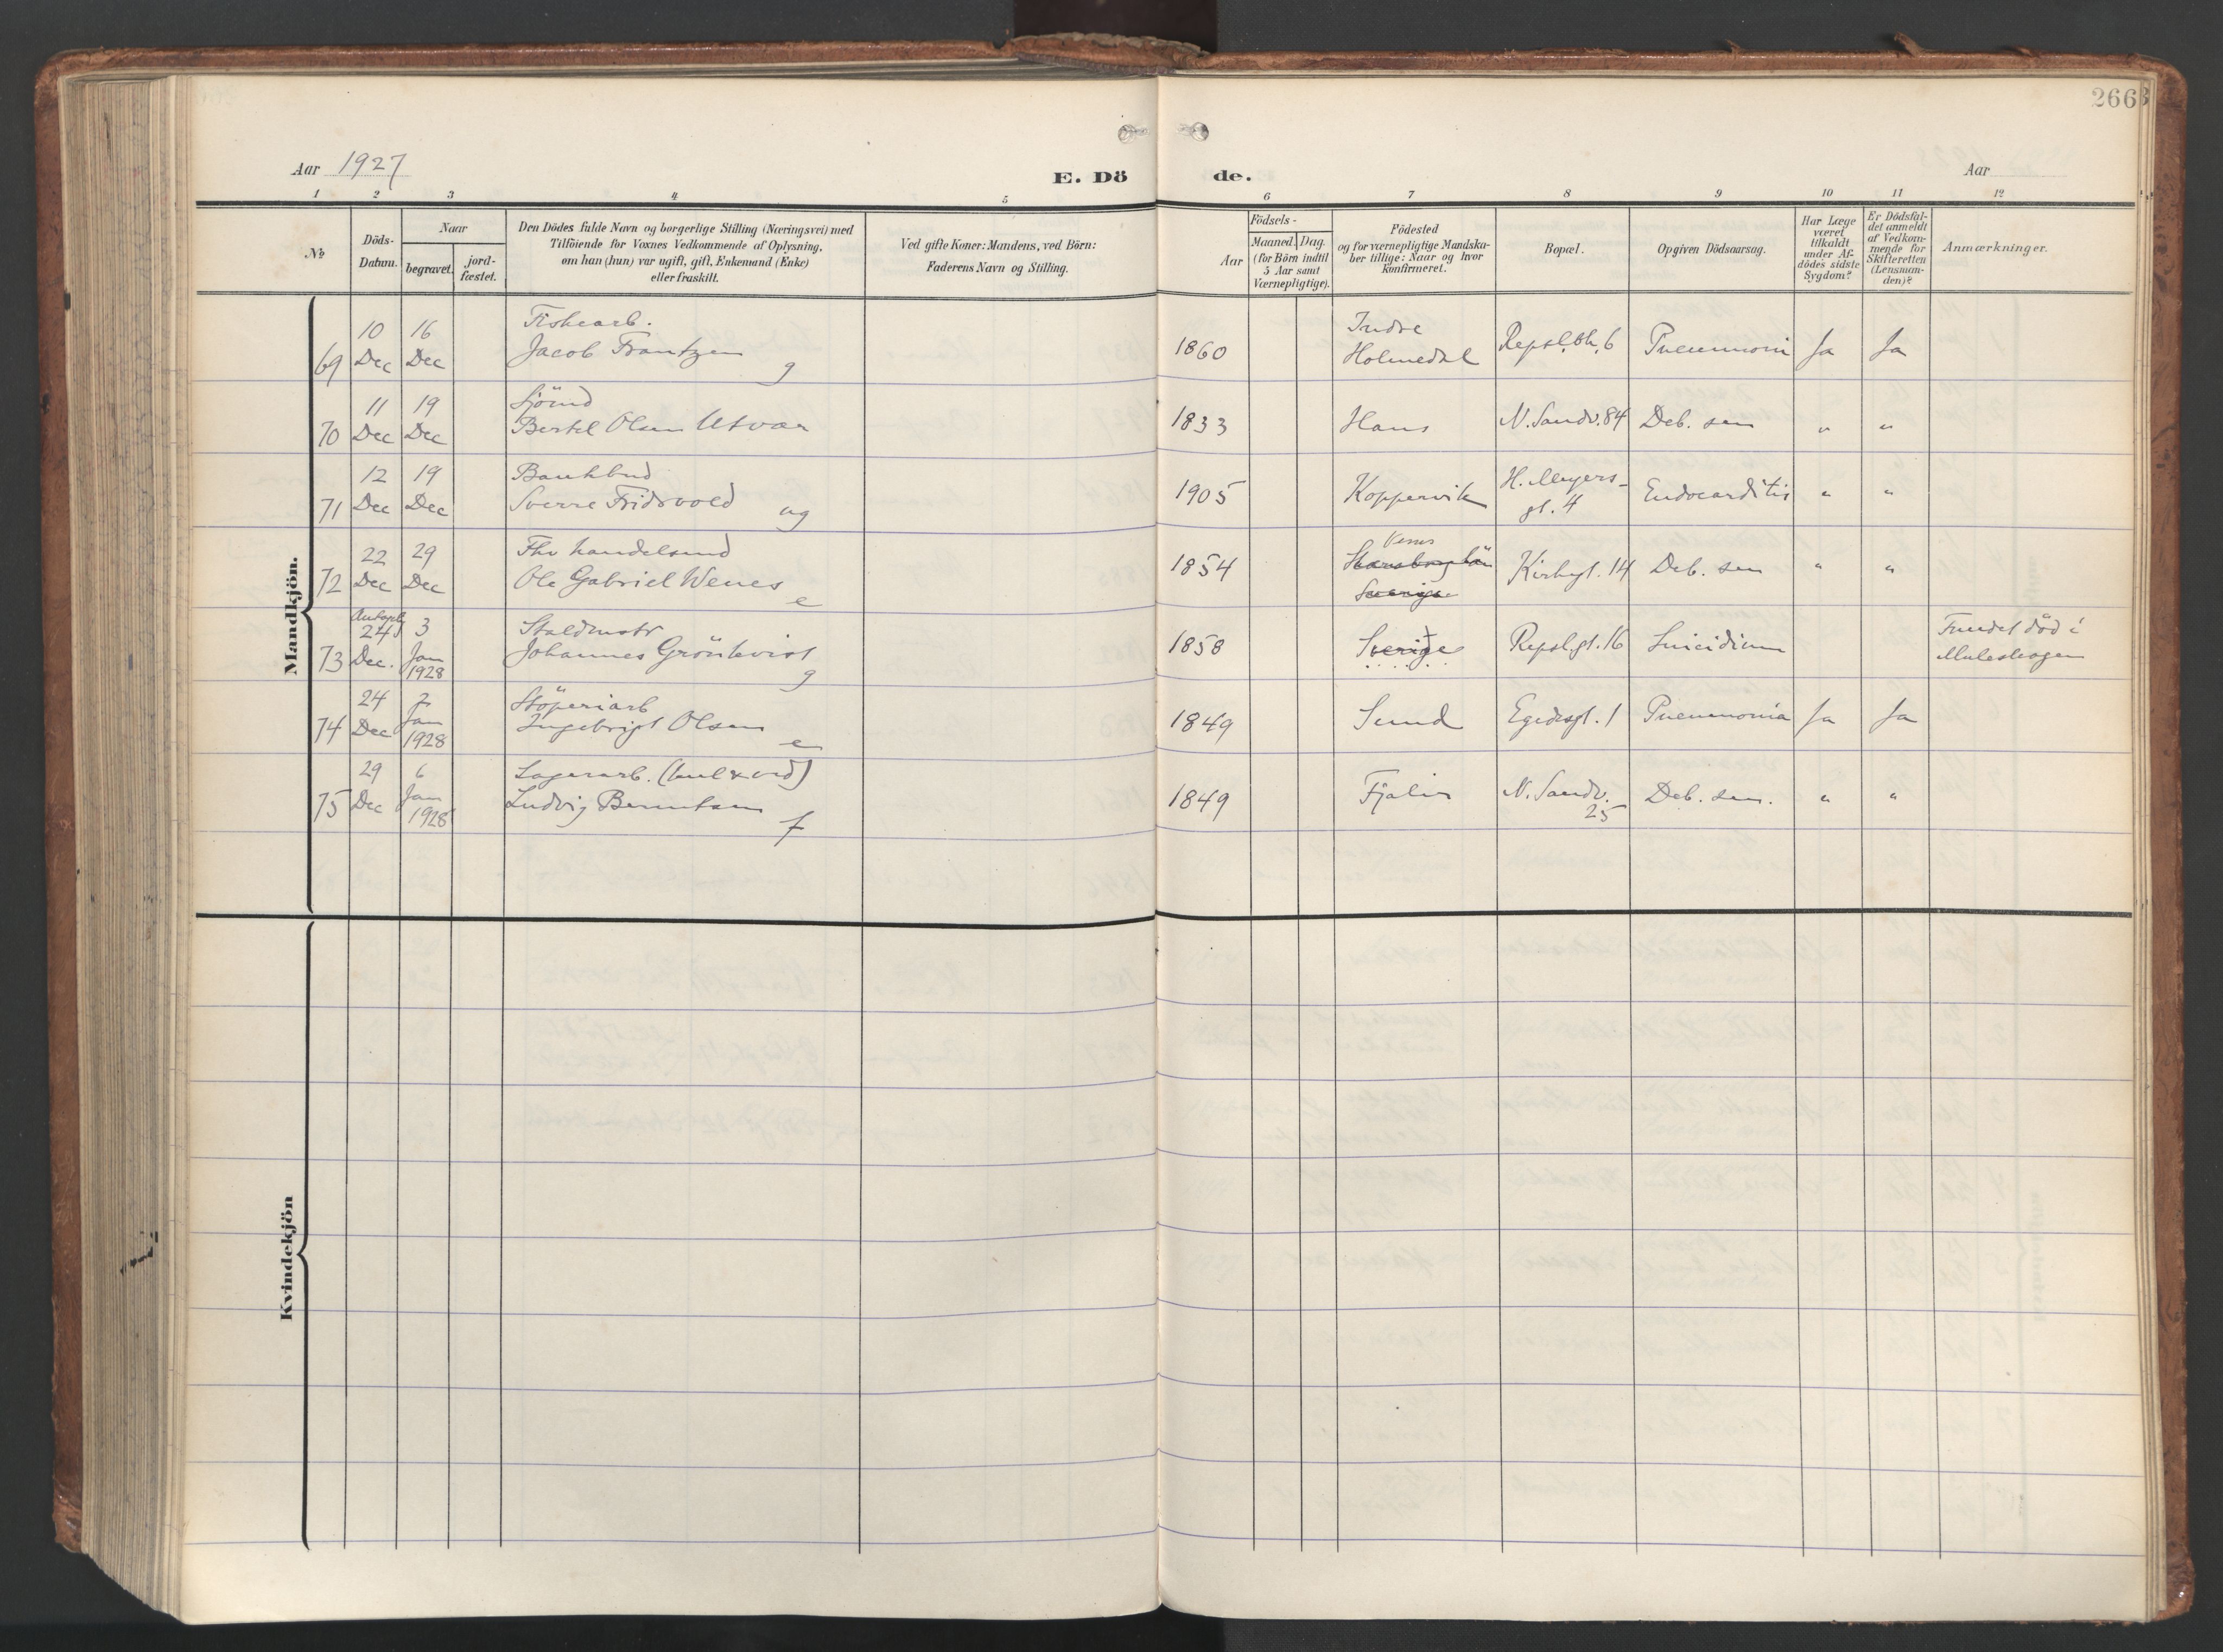 266
Aar 1927
E. Dö de.
Aar
1 2 3 4 5 6 7 8 9 10 11 12
No
Döds-
Datum.
Naar
begravet.
jord-
fæstet.
Den Dödes fulde Navn og borgerlige Stilling (Næringsvei) med
Tilföiende for Voxnes Vedkommende af Oplysning,
om han (hun) var ugift, gift, Enkemand (Enke)
eller fraskilt.
Ved gifte Koner: Mandens, ved Börn:
Faderens Navn og Stilling.
Födsels-
Aar
Maaned. Dag.
(for Börn indtil
5 Aar samt
Værnepligtige).
Födested
og for værnepligtige Mandska-
ber tillige: Naar og hvor
Konfirmeret.
Bopæl.
Opgiven Dödsaarsag.
Har Læge
været
tilkaldt
under Af-
dödes sidste
Sygdom?
Er Dödsfal-
det anmeldt
af Vedkom-
mende for
Skifteretten
(Lensman-
den)?
Anmærkninger.
Mandkjön.
69 10 Dec 16 Dec Fiskearb. Jacob Frantzen g 1860 Indre Holmedal Repsl.bk. 6 Pneumoni Ja Ja
70 11 Dec 19 Dec Sjömd Bertel Olsen Utvær 1833 Haus N. Sandv. 84 Deb. sen " "
71 12 Dec 19 Dec Bankbud Sverre Fridsvold ug 1905 Koppervik H. Meyers- gt. 4 Endocarditis " "
72 22 Dec 29 Dec Fhv handelsmd Ole Gabriel Wenes e 1854 Sverige Kirkegt. 14 Deb. sen " "
73 24 Dec. 3 Jan 1928 Staldmstr Johannes Grönkvist g 1858 Sverige Repsl.gt. 16 Suicidium Fundet död i Muleskogen
74 24 Dec 2 Jan 1928 Stöperiarb Ingebrigt Olsen e 1849 Sund Egedesgt. 1 Pneumonia Ja Ja
75 29 Dec 6 Jan 1928 Lagerarb. (kul & ved) Ludvig Berntsen f 1849 Fjaler N. Sandv. 25 Deb. sen. " "
Kvindekjön